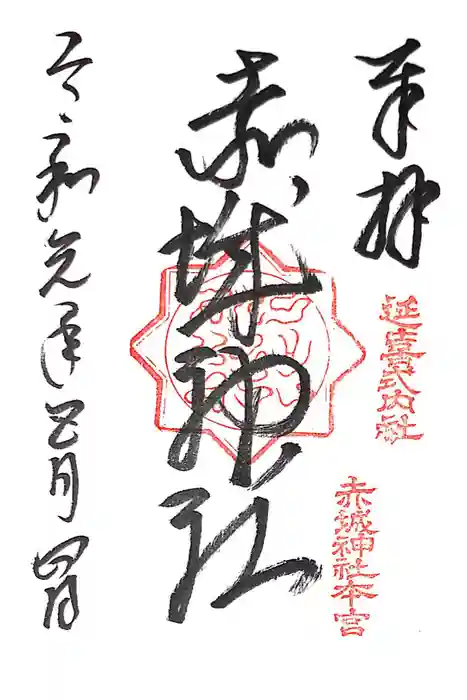 奉拝
延喜式内社
赤城神社本宮
赤城神社
令和元年五月四日